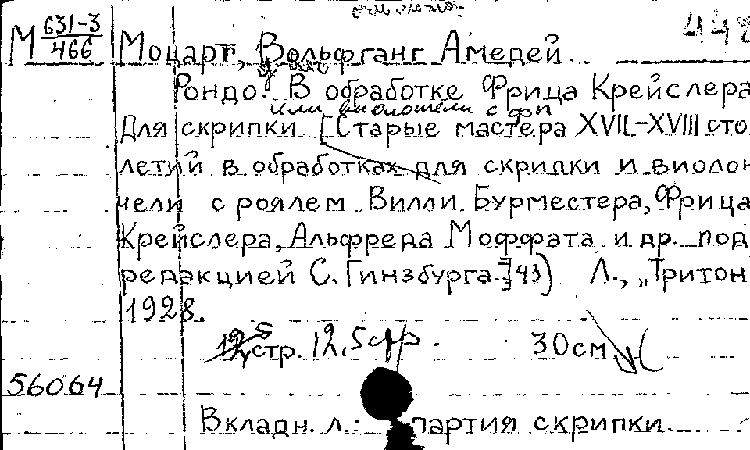 448
М 631-3/466 Моцарт, Вольфганг Амедей
Рондо. В обработке Фрица Крейслера
или виолончели с фп
Для скрипки [Старые мастера XVII-XVIII сто
летий в обработках для скрипки и виолон
чели с роялем Вилли Бурместера, Фрица
Крейслера, Альфреда Моффата и др. под
редакцией С. Гинзбурга. 43) Л., „Тритон
1928.
стр. 12,5 стр. 30 см
56064
Вкладн. л.: партия скрипки